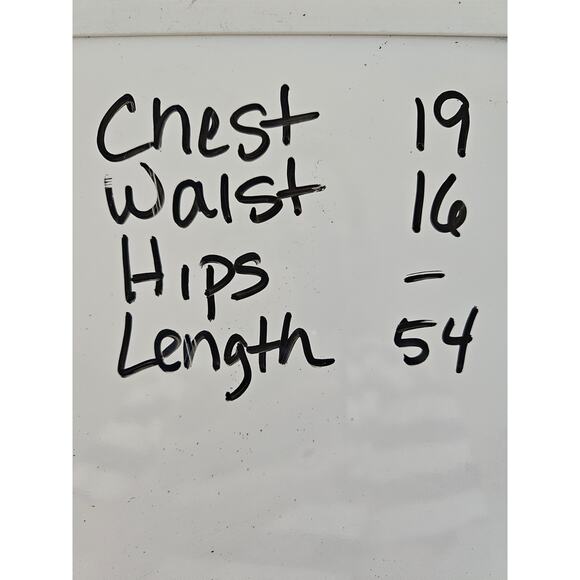 Chest 19
Waist 16
Hips -
Length 54